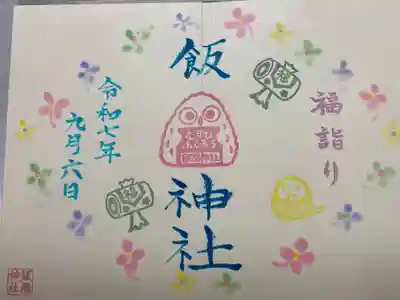 福詣り
飯
神社
令和七年
九月六日